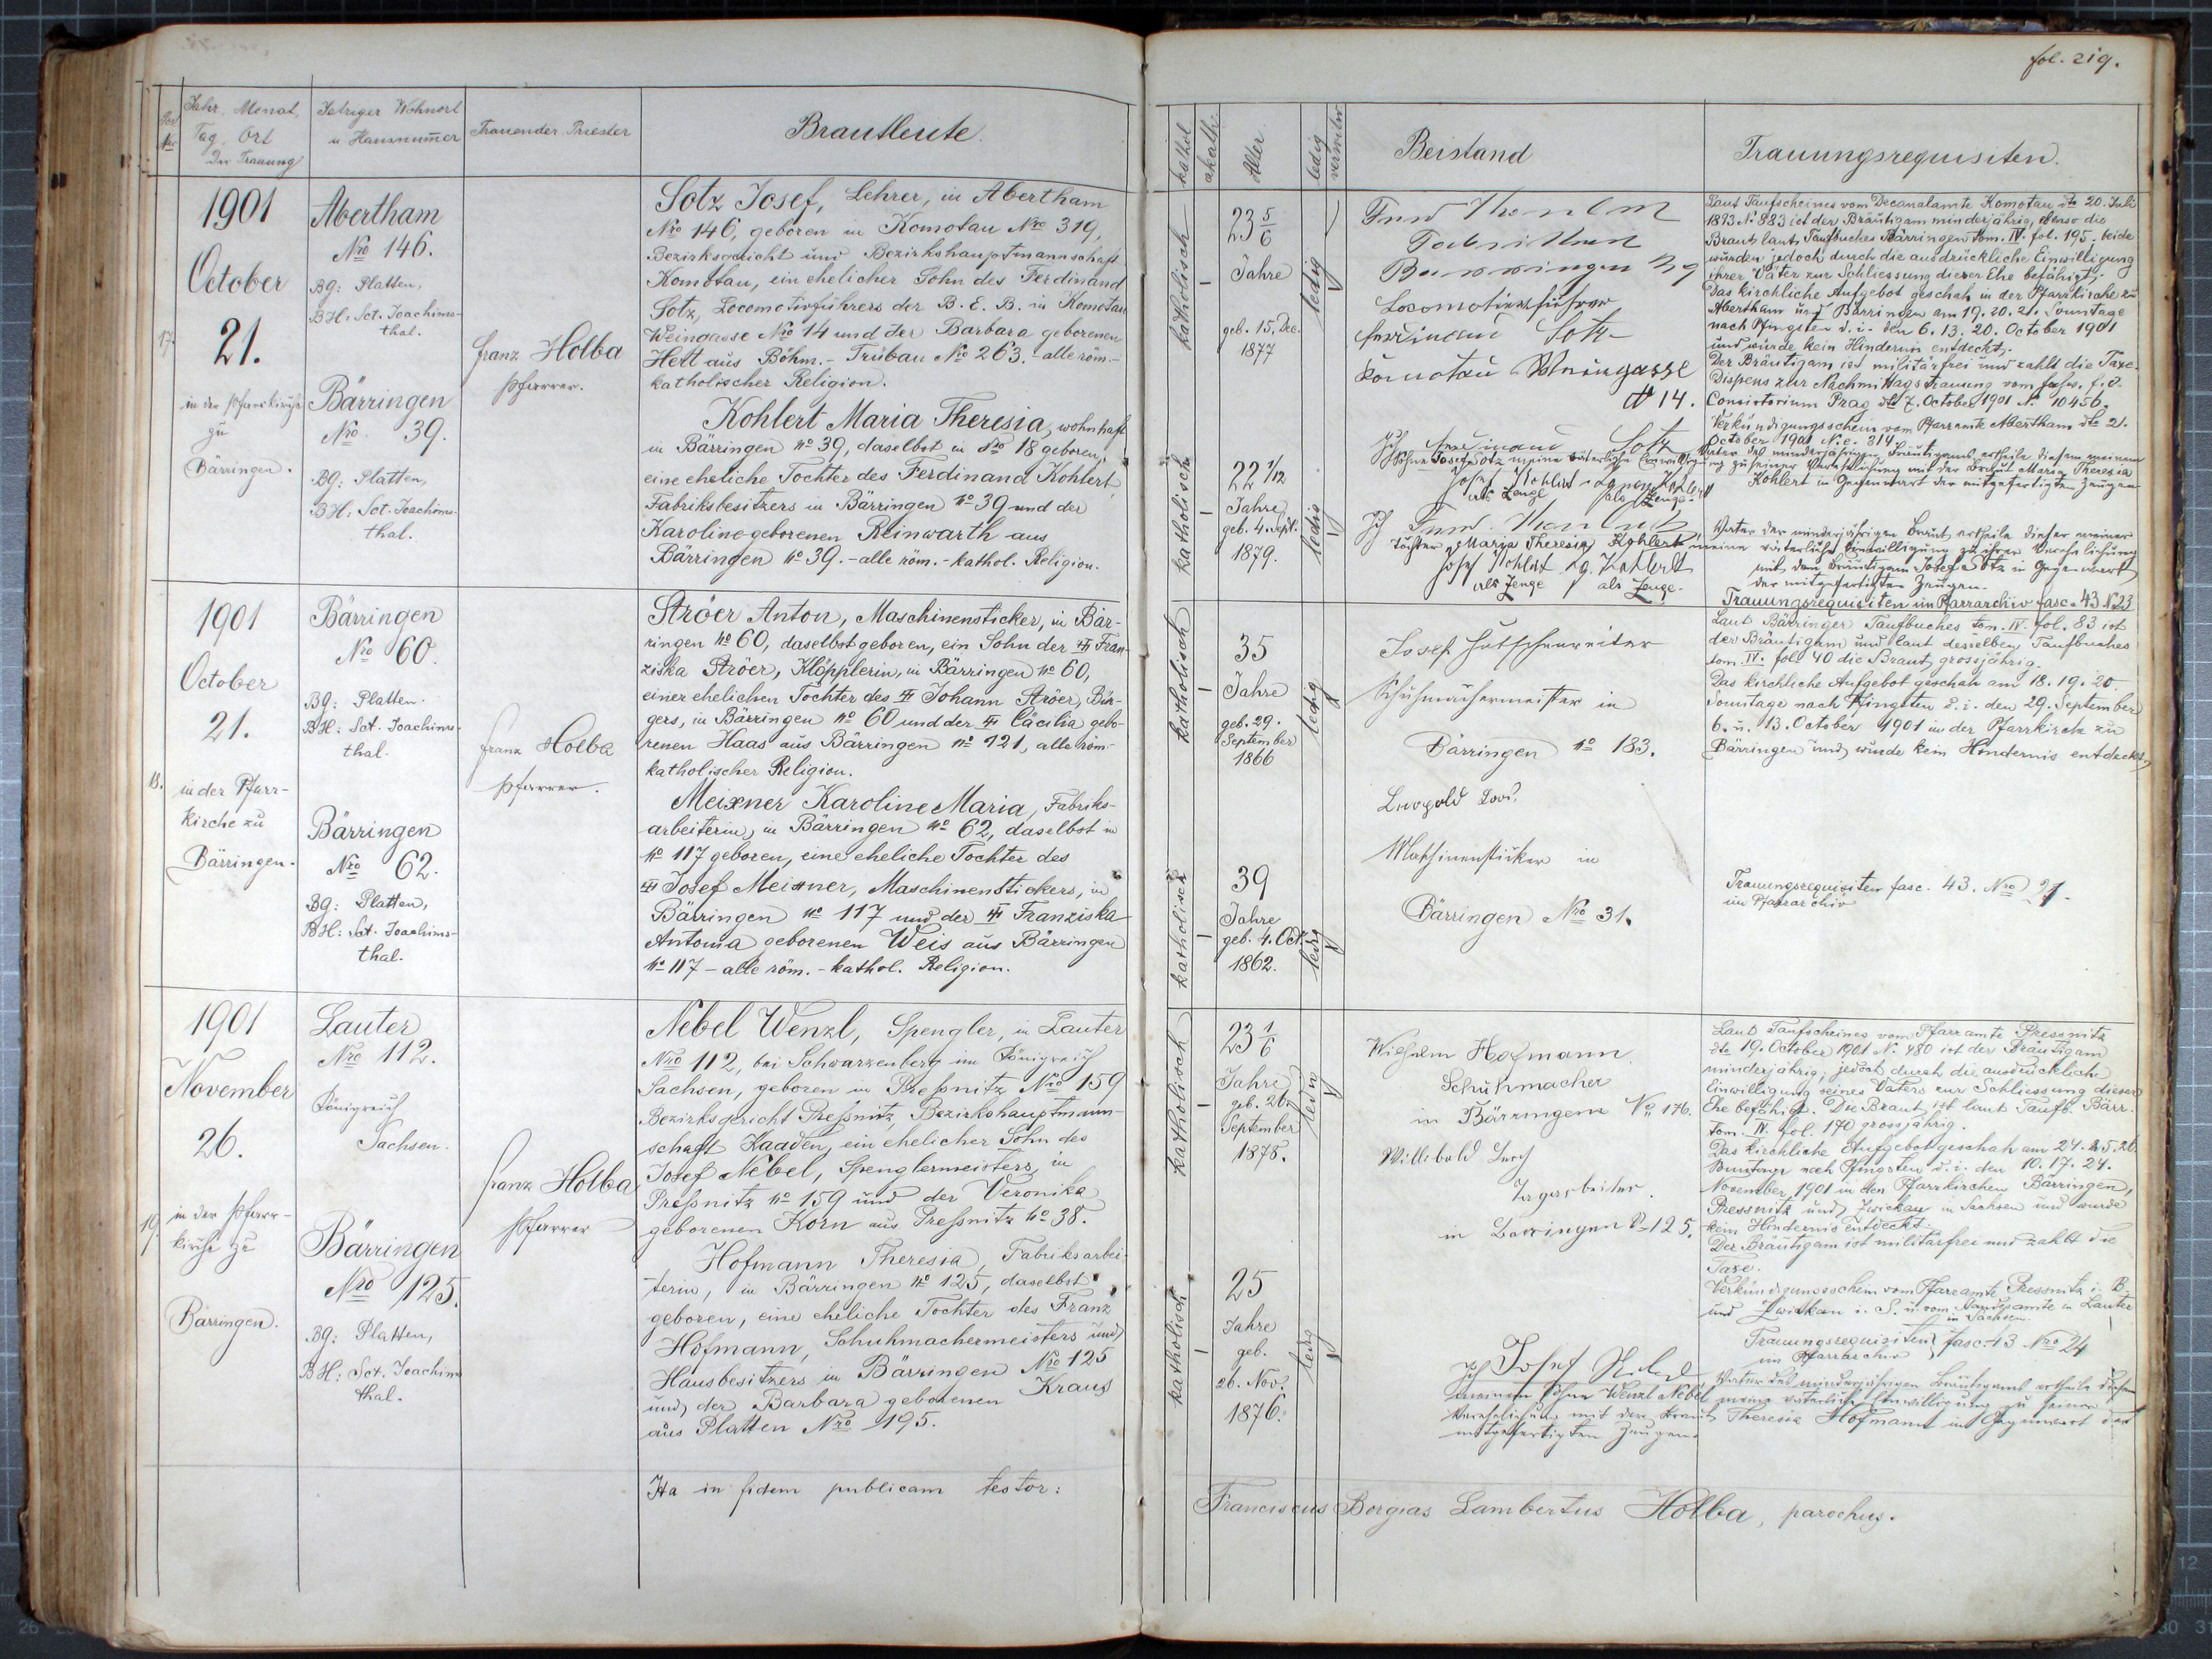 fol. 219.
Jahr, Monat,
Tag, Ort
der Trauung
Jetziger Wohnort
u. Hausnum̄er
Trauender Priester
Brautleute.
kathol.
akath.
Alter.
ledig
verwitw.
Beistand
Trauungsrequisiten.
17.
1901
October
21.
in der Pfarrkirche
zu
Bärringen.
Abertham
Nro 146.
BG: Platten,
BH: Sct. Joachims-
thal.
Bärringen
Nro 39.
BG: Platten,
BH: Sct. Joachims-
thal.
Franz Holba
Pfarrer.
Sotz Josef, Lehrer, in Abertham
Nro 146, geboren in Komotau Nro 319,
Bezirksgericht und Bezirkshauptmannschaft
Komotau, ein ehelicher Sohn des Ferdinand
Sotz, Locomotivführers der B. E. B. in Komotau
Weingasse No 14 und der Barbara geborenen
Hett aus Böhm.-Trübau No 263. - alle röm.-
katholischer Religion.
Kohlert Maria Theresia, wohnhaft
in Bärringen No 39, daselbst in No 18 geboren,
eine eheliche Tochter des Ferdinand Kohlert,
Fabriksbesitzers in Bärringen No 39 und der
Karoline geborenen Reinwarth aus
Bärringen No 39. - alle röm.-kathol. Religion.
katholisch
23 5/6
Jahre
geb. 15. Dec.
1877
ledig
katholisch
22 1/12
Jahre
geb. 4. Sept.
1879.
ledig
Bärringen 39
Locomotivführer
Ferdinand Sotz
Komotau Weingasse
No 14.
Laut Taufscheines vom Decanalamte Komotau dto 20. Juli
1893 N. 823 ist der Bräutigam minderjährig, ebenso die
Braut laut Taufbuches Bärringen tom. IV. fol. 195. beide
wurden jedoch durch die ausdrückliche Einwilligung
ihrer Väter zur Schliessung dieser Ehe befähigt;
Das kirchliche Aufgebot geschah in der Pfarrkirche zu
Abertham und Bärringen am 19. 20. 21. Sonntage
nach Pfingsten d. i. den 6. 13. 20. October 1901
und wurde kein Hindernis entdeckt.
Der Bräutigam ist militärfrei und zahlt die Taxe.
Dispens zur Nachmittags Trauung vom
Consistorium Prag dto 7. October 1901 N. 10456.
Verkündigungsschein vom Pfarramte Abertham dto 21.
October 1901 N. e. 314.
Ich Ferdinand Sotz Vater des minderjährigen Bräutigams, ertheile diesem meinem
Sohne Josef Sotz meine väterliche Einwilligung zu seiner Verehelichung mit der Braut Maria Theresia
Kohlert in Gegenwart der mitgefertigten Zeugen
Josef Kohlert Kohlert
als Zeuge als Zeuge.
Ich Vater der minderjährigen Braut, ertheile dieser meiner
Tochter Maria Theresia Kohlert meine väterliche Einwilligung zu ihrer Verehelichung
mit dem Bräutigam Josef Sotz in Gegenwart
der mitgefertigten Zeugen.
Josef Kohlert Kohlert
als Zeuge als Zeuge.
Trauungsrequisiten im Pfarrarchiv fasc. 43 N. 23
18.
1901
October
21.
in der Pfarr-
kirche zu
Bärringen.
Bärringen
Nro 60.
BG: Platten.
BH: Sct. Joachims-
thal.
Bärringen
Nro 62.
BG: Platten,
BH: Sct. Joachims-
thal.
Franz Holba
Pfarrer.
Ströer Anton, Maschinensticker, in Bär-
ringen No 60, daselbst geboren, ein Sohn der Fran-
ziska Ströer, Klöpplerin, in Bärringen No 60,
einer ehelichen Tochter des Johann Ströer, Bür-
gers, in Bärringen No 60 und der Cäcilia gebo-
renen Haas aus Bärringen No 121, alle röm-
katholischer Religion.
Meixner Karoline Maria, Fabriks-
arbeiterin, in Bärringen No 62, daselbst in
No 117 geboren, eine eheliche Tochter des
Josef Meixner, Maschinenstickers, in
Bärringen No 117 und der Franziska
Antonia geborenen Weis aus Bärringen
No 117 - alle röm.-kathol. Religion.
katholisch
35
Jahre
geb. 29.
September
1866
ledig
katholisch
39
Jahre
geb. 4. Oct.
1862.
ledig
Josef Hutschenreiter
Schuhmachermeister in
Bärringen No 183.
Leopold Loos.
Maschinensticker in
Bärringen Nro 31.
Laut Bärringer Taufbuches tom. IV. fol. 83 ist
der Bräutigam und laut desselben Taufbuches
tom. IV. fol. 40 die Braut grossjährig.
Das kirchliche Aufgebot geschah am 18. 19. 20.
Sonntage nach Pfingsten d. i. den 29. September
6. u. 13. October 1901 in der Pfarrkirche zu
Bärringen und wurde kein Hindernis entdeckt.
Trauungsrequisiten fasc. 43. Nro 21.
im Pfarrarchiv
19.
1901
November
26.
in der Pfarr-
kirche zu
Bärringen.
Lauter
Nro 112.
Königreich
Sachsen.
Bärringen
Nro 125.
BG: Platten,
BH: Sct. Joachims
thal.
Franz Holba
Pfarrer
Nebel Wenzl, Spengler, in Lauter
Nro 112, bei Schwarzenberg im Königreich
Sachsen, geboren in Preßnitz Nro 159
Bezirksgericht Preßnitz, Bezirkshauptmann-
schaft Kaaden, ein ehelicher Sohn des
Josef Nebel, Spenglermeisters, in
Preßnitz No 159 und der Veronika
geborenen Korn aus Preßnitz No 38.
Hofmann Theresia, Fabriksarbei-
terin, in Bärringen No 125, daselbst
geboren, eine eheliche Tochter des Franz
Hofmann, Schuhmachermeisters und
Hausbesitzers in Bärringen Nro 125
und der Barbara geborenen Kraus
aus Platten Nro 195.
katholisch
23 1/6
Jahre
geb. 26.
September
1878.
ledig
katholisch
25
Jahre
geb.
26. Nov.
1876.
ledig
Wilhelm Hofmann
Schuhmacher
in Bärringen No 176.
Willibald
in Barringen No 125.
Laut Taufscheines vom Pfarramte Pressnitz
dto 19. October 1901 N. 480 ist der Bräutigam
minderjährig; jedoch durch die ausdrückliche
Einwilligung seines Vaters zur Schliessung dieser
Ehe befähigt. Die Braut ist laut Taufb. Bärr.
tom. IV. fol. 170 grossjährig.
Das kirchliche Aufgebot geschah am 24. 25. 26.
Sonntage nach Pfingsten d. i. den 10. 17. 24.
November 1901 in den Pfarrkirchen Bärringen,
Pressnitz und Zwickau in Sachsen und wurde
kein Hindernis entdeckt.
Der Bräutigam ist militärfrei und zahlt die
Taxe.
Verkündigungsschein vom Pfarramte Pressnitz i. B.
und Zwickau i. S. u. vom Standesamte in Lauter
in Sachsen.
Trauungsrequisiten fasc. 43 Nro 24
im Pfarrarchiv
Ich Josef Nebel Vater des minderjährigen Bräutigams ertheile diesem
meinem Sohne Wenzl Nebel meine väterliche Einwilligung zu seiner
Verehelichung mit der Braut Theresia Hofmann in Gegenwart der
mitgefertigten Zeugen.
Ita in fidem publicam testor:
Franciscus Borgias Lambertus Holba, parochus.